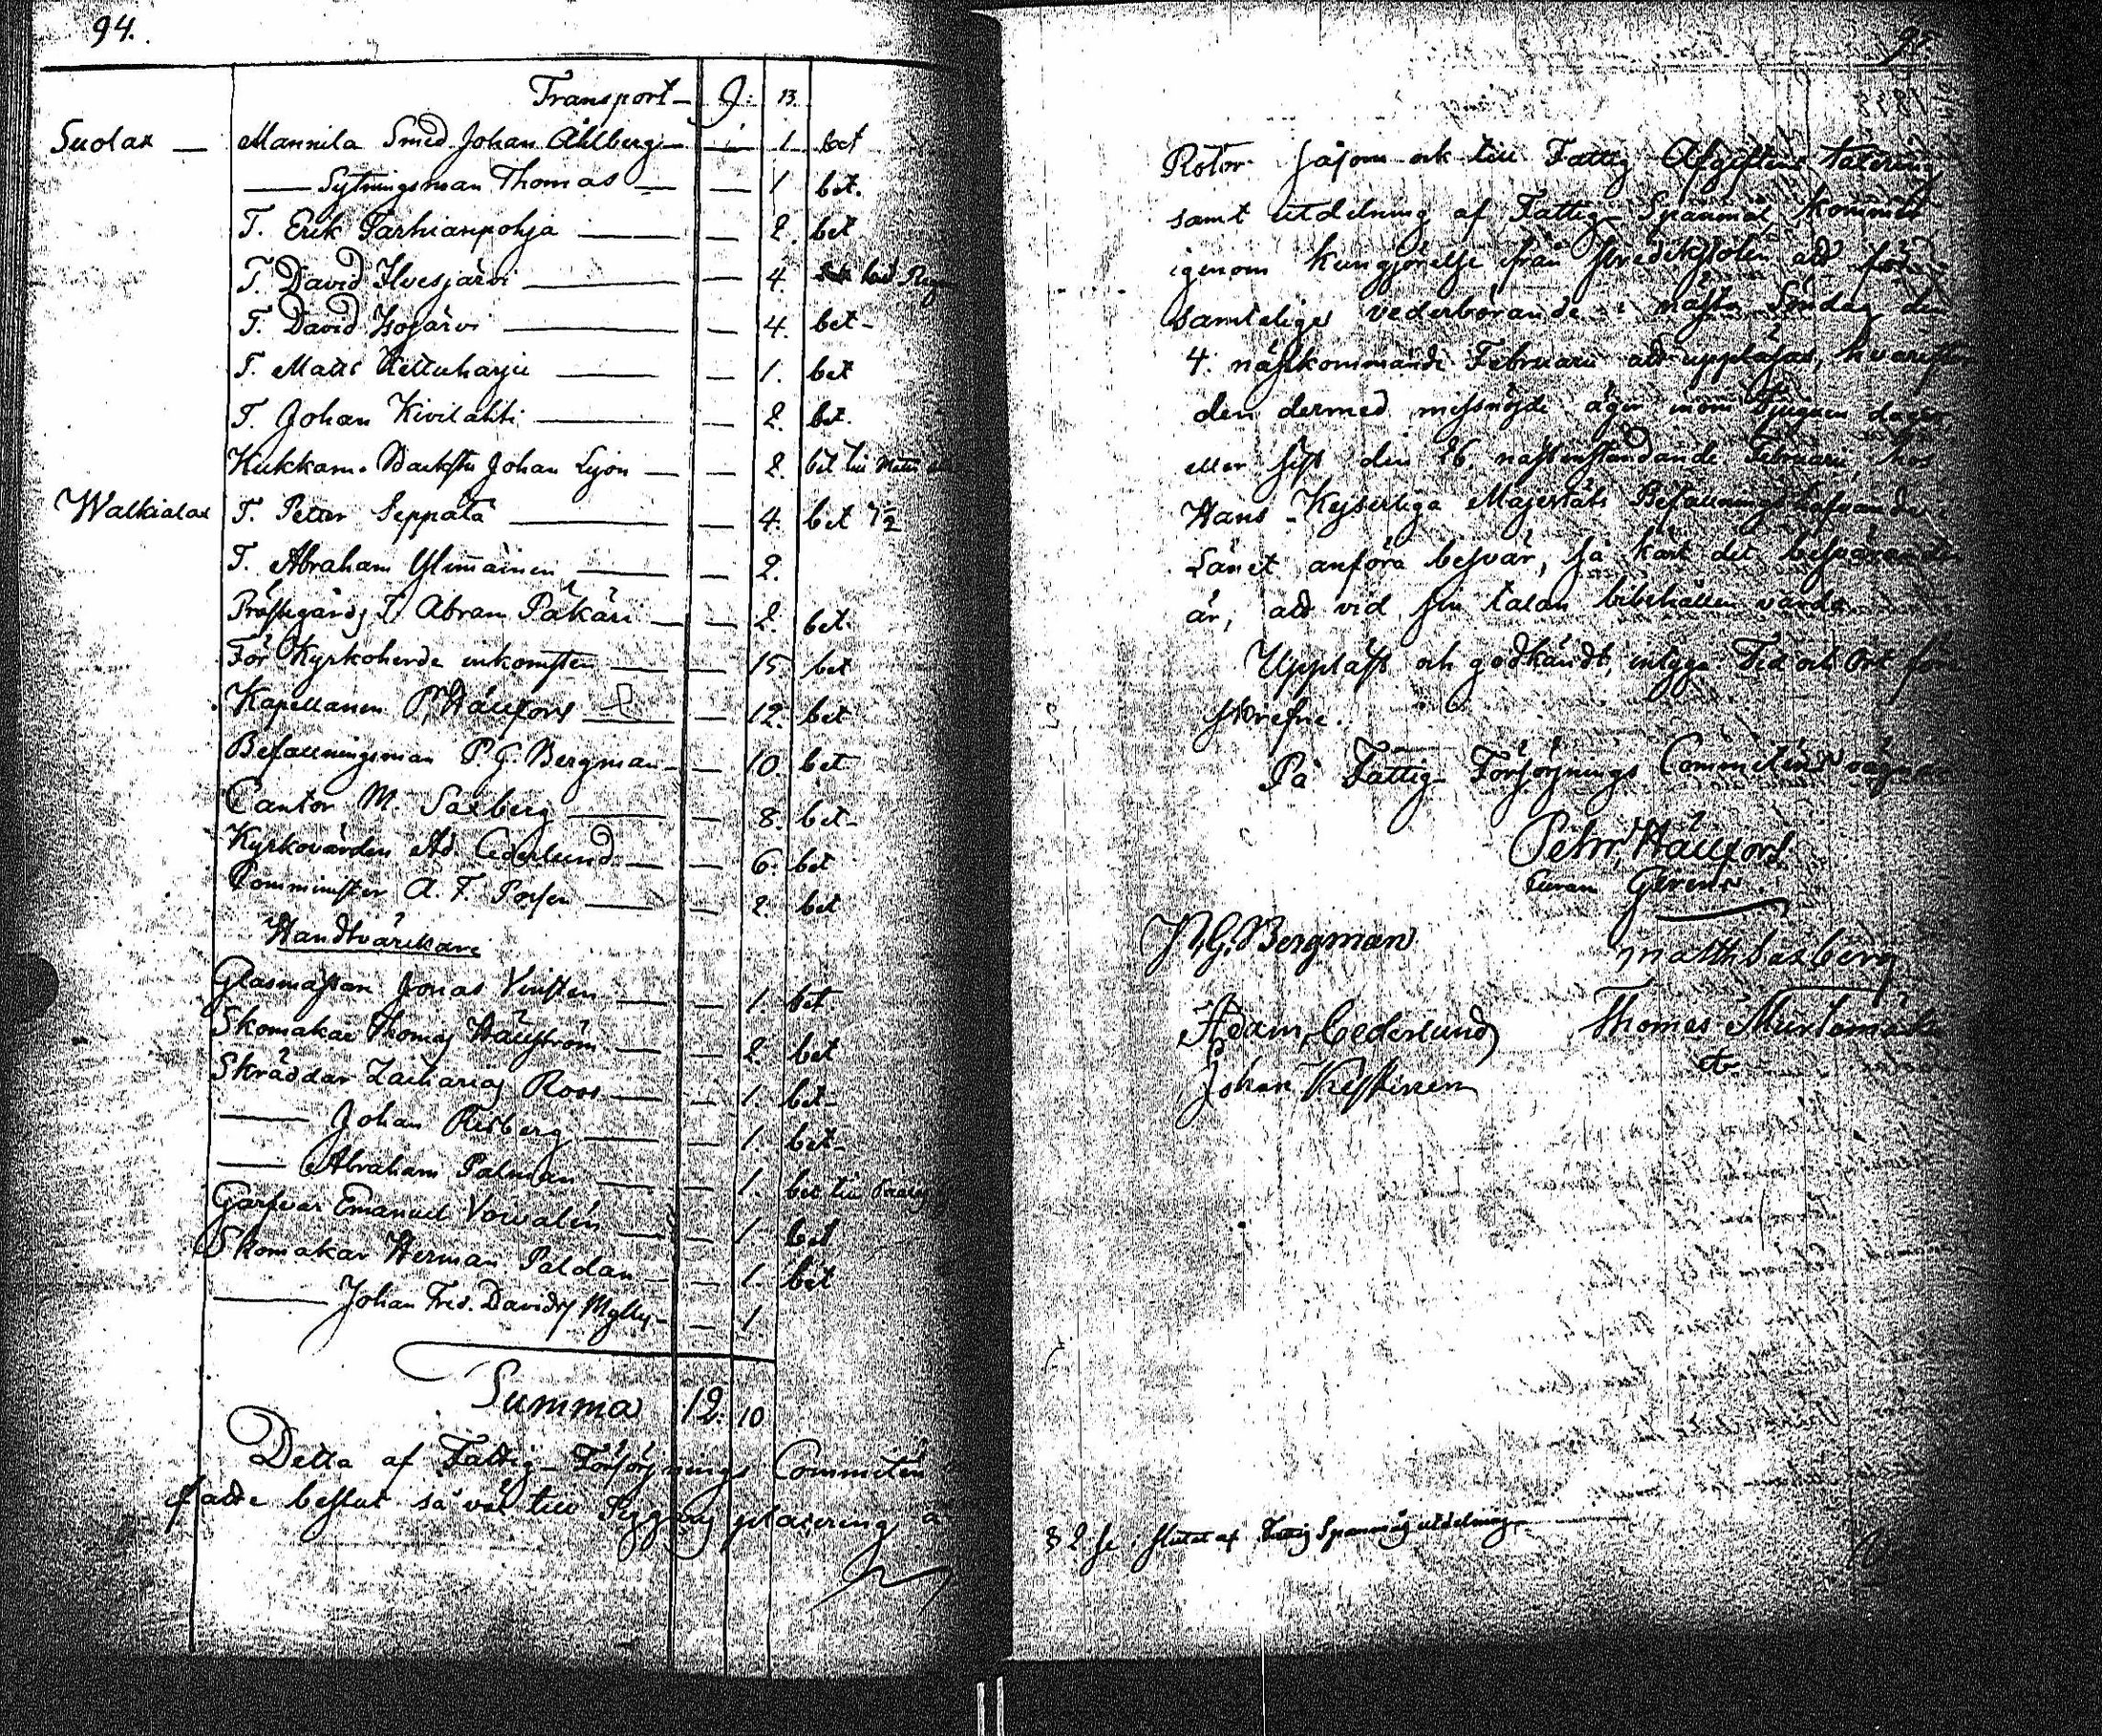 94.
Transport 9. 13.
Suolax Mannila Smed Johan Åhlberg 1 bet
Sytningsman Thomas 1 bet.
T. Erik Tarhianpohja 2. bet
T. David Ilvesjärvi 4.
T. David Isojärvi 4. bet
T. Matts Kettuharju 1. bet
T. Johan Kivilahti 2. bet.
Kukkam. Johan Lyon 2. bet till
Walkialax T. Petter Seppälä 4. bet
T. Abraham Ylimäinen 2.
Prästegårds T. Abram Päkäri 2. bet.
För Kyrkoherde inkomsten 15. bet
Kapellanen P. Hällfors 12. bet
Befallningsman P. G. Bergman 10. bet
Cantor M. Saxberg 8. bet
Kyrkovärden Ad. Cederlund 6. bet
Comminister A. F. 2. bet
Handtvärckare
Glasmästan Jonas 1. bet.
Skomakar Thomas Hällström 2. bet
Skräddar Zacharias Roos 1. bet
Johan Risberg 1. bet
Abraham Palman 1. bet till
Garfvar Emanuel 1. bet
Skomakar Herman Paldan 1. bet
Johan Fred. Davids Mylly 1
Summa 12. 10
Detta af Fattig-Försörjnings Commitén
fatte beslut så väl till
95.
Rotor såsom ock till Fattig Afgiftens taxering
samt utdelning af Fattig Spanmål, kommer
igenom kungjörelse från Predikstolen att
samtelige vederbörande nästa Söndag den
4. nästkommande Februarii att uppläsas, hvarefter
den dermed missnöjde äger inom tjugun dagar,
eller sist den 26. nästinstundande Februarii, hos
Hans Kejserliga Majestäts Befallningshafvande i
Länet anföra besvär, så kärt det besvärande
är, att vid sin talan bibehållen varda.
Uppläst och godkändt, intyga Tid och Ort före
skrefne.
På Fattig-Försörjnings Commiténs vägnar
Petr. Hällfors
Curam Gerens.
P. G. Bergman Matth Saxberg
Adam Cederlund Thomas
Johan Keskinen
§ 2 se slutet af Fattig Spanmåls utdelning